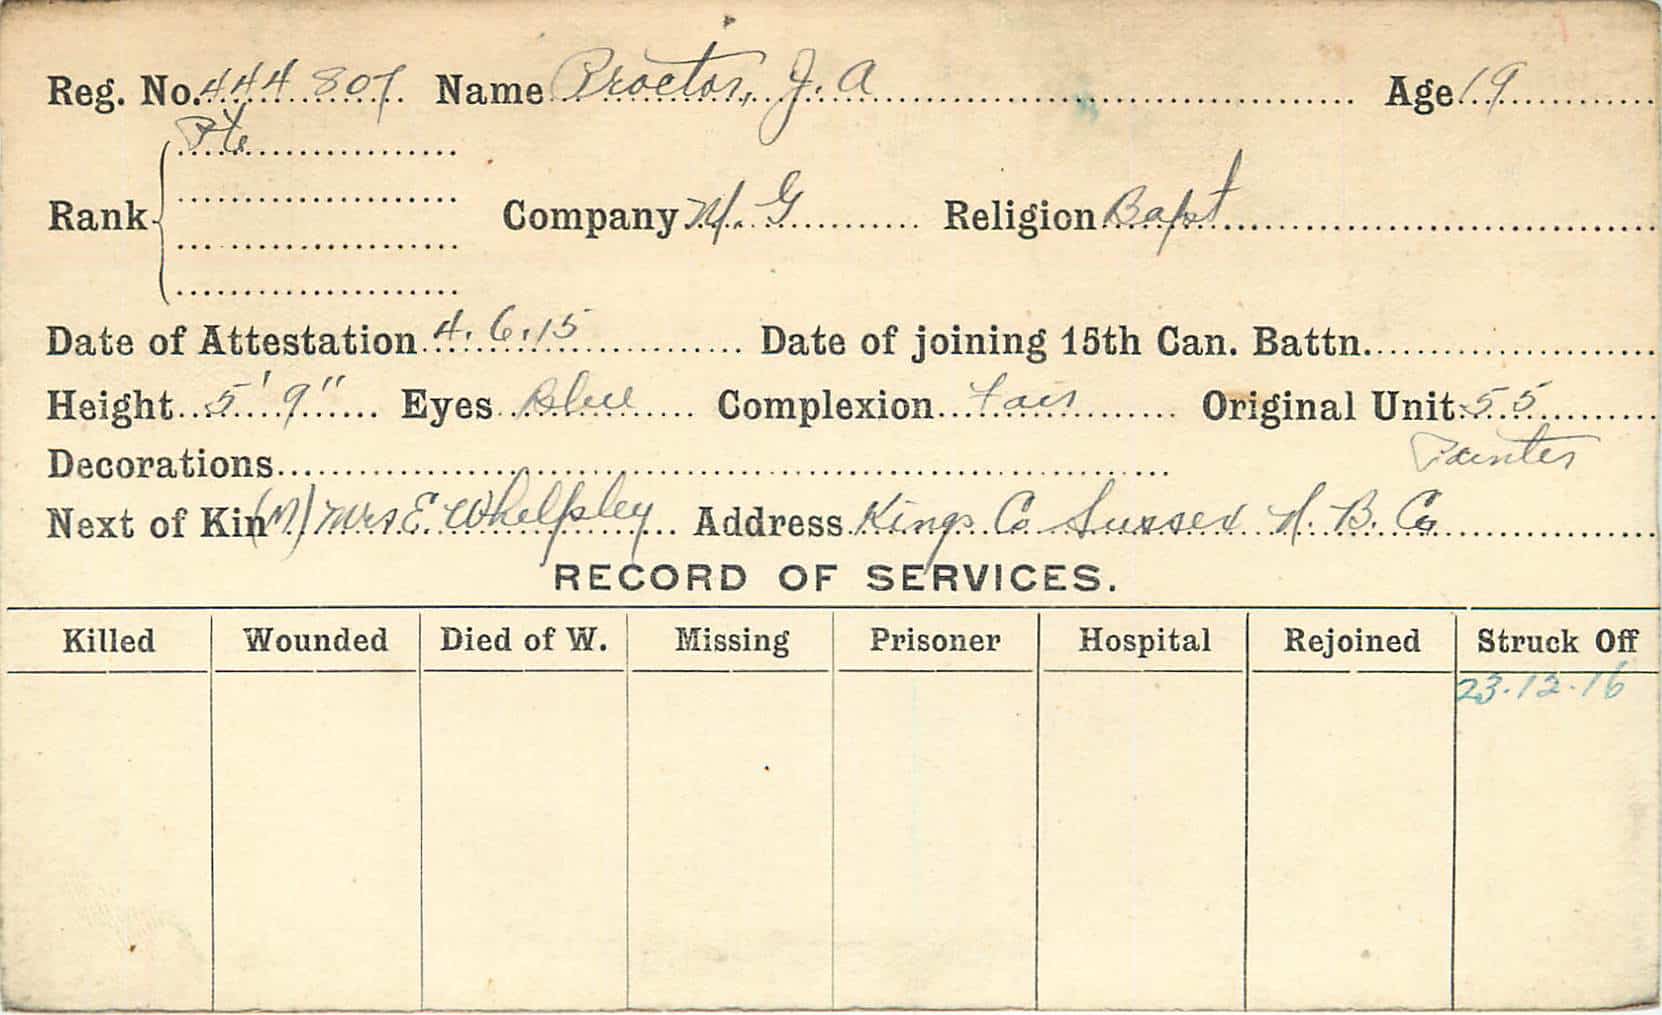 Reg. No. 444 807 Name Proctor, J. A Age 19
Pte
Rank Company M. G Religion Bapt
Date of Attestation 4.6.15 Date of joining 15th Can. Battn.
Height 5' 9" Eyes Blue Complexion Fair Original Unit 55
Decorations Painter
Next of Kin (M) Mrs E. Whelpley Address Kings Co Sussex N. B. Ca
RECORD OF SERVICES.
Killed Wounded Died of W. Missing Prisoner Hospital Rejoined Struck Off
23.12.16